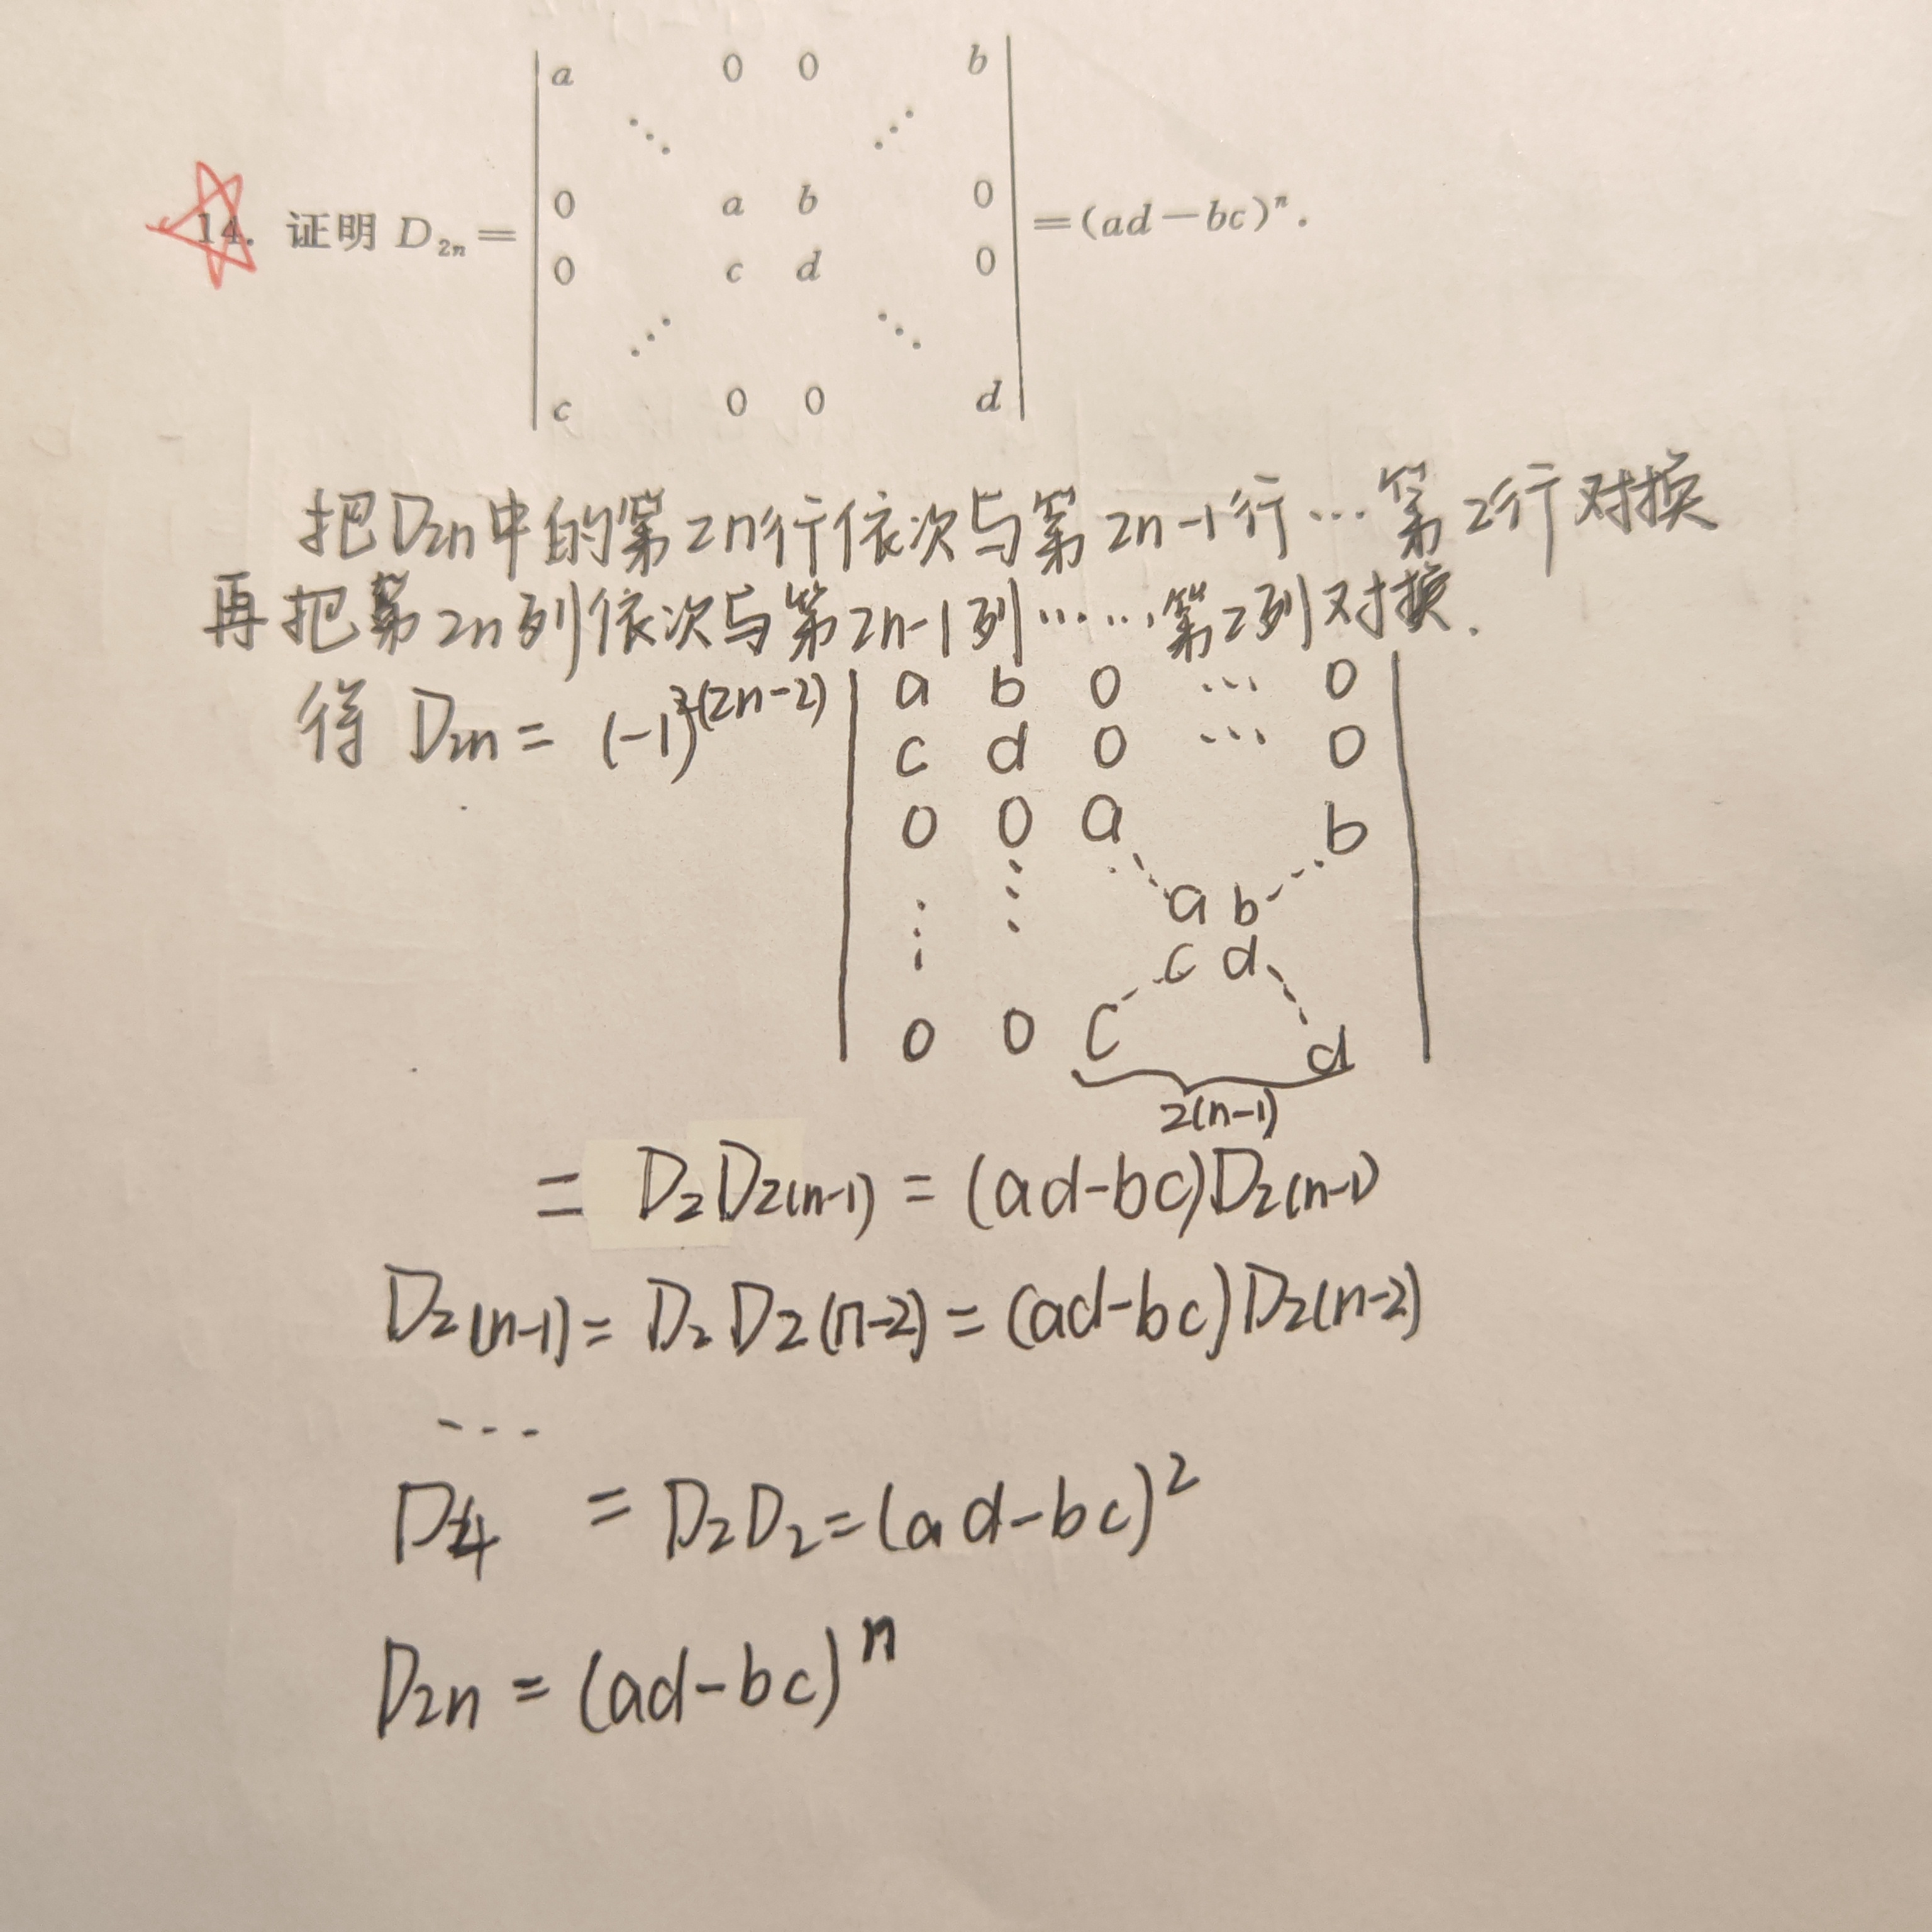 a 0 0 b
⋱ ⋰
0 a b 0
14. 证明 D₂ₙ= =(ad−bc)ⁿ.
0 c d 0
⋰ ⋱
c 0 0 d
把D₂ₙ中的第2n行依次与第2n-1行…第2行对换
再把第2n列依次与第2n-1列……第2列对换.
得 D₂ₙ = (-1)²⁽²ⁿ⁻²⁾ a b 0 … 0
c d 0 … 0
0 0 a b
⋮ ⋮ a b
c d
0 0 c d
2(n-1)
= D₂D₂₍ₙ₋₁₎ = (ad-bc)D₂₍ₙ₋₁₎
D₂₍ₙ₋₁₎ = D₂D₂₍ₙ₋₂₎ = (ad-bc)D₂₍ₙ₋₂₎
---
D₄ = D₂D₂ = (ad-bc)²
D₂ₙ = (ad-bc)ⁿ